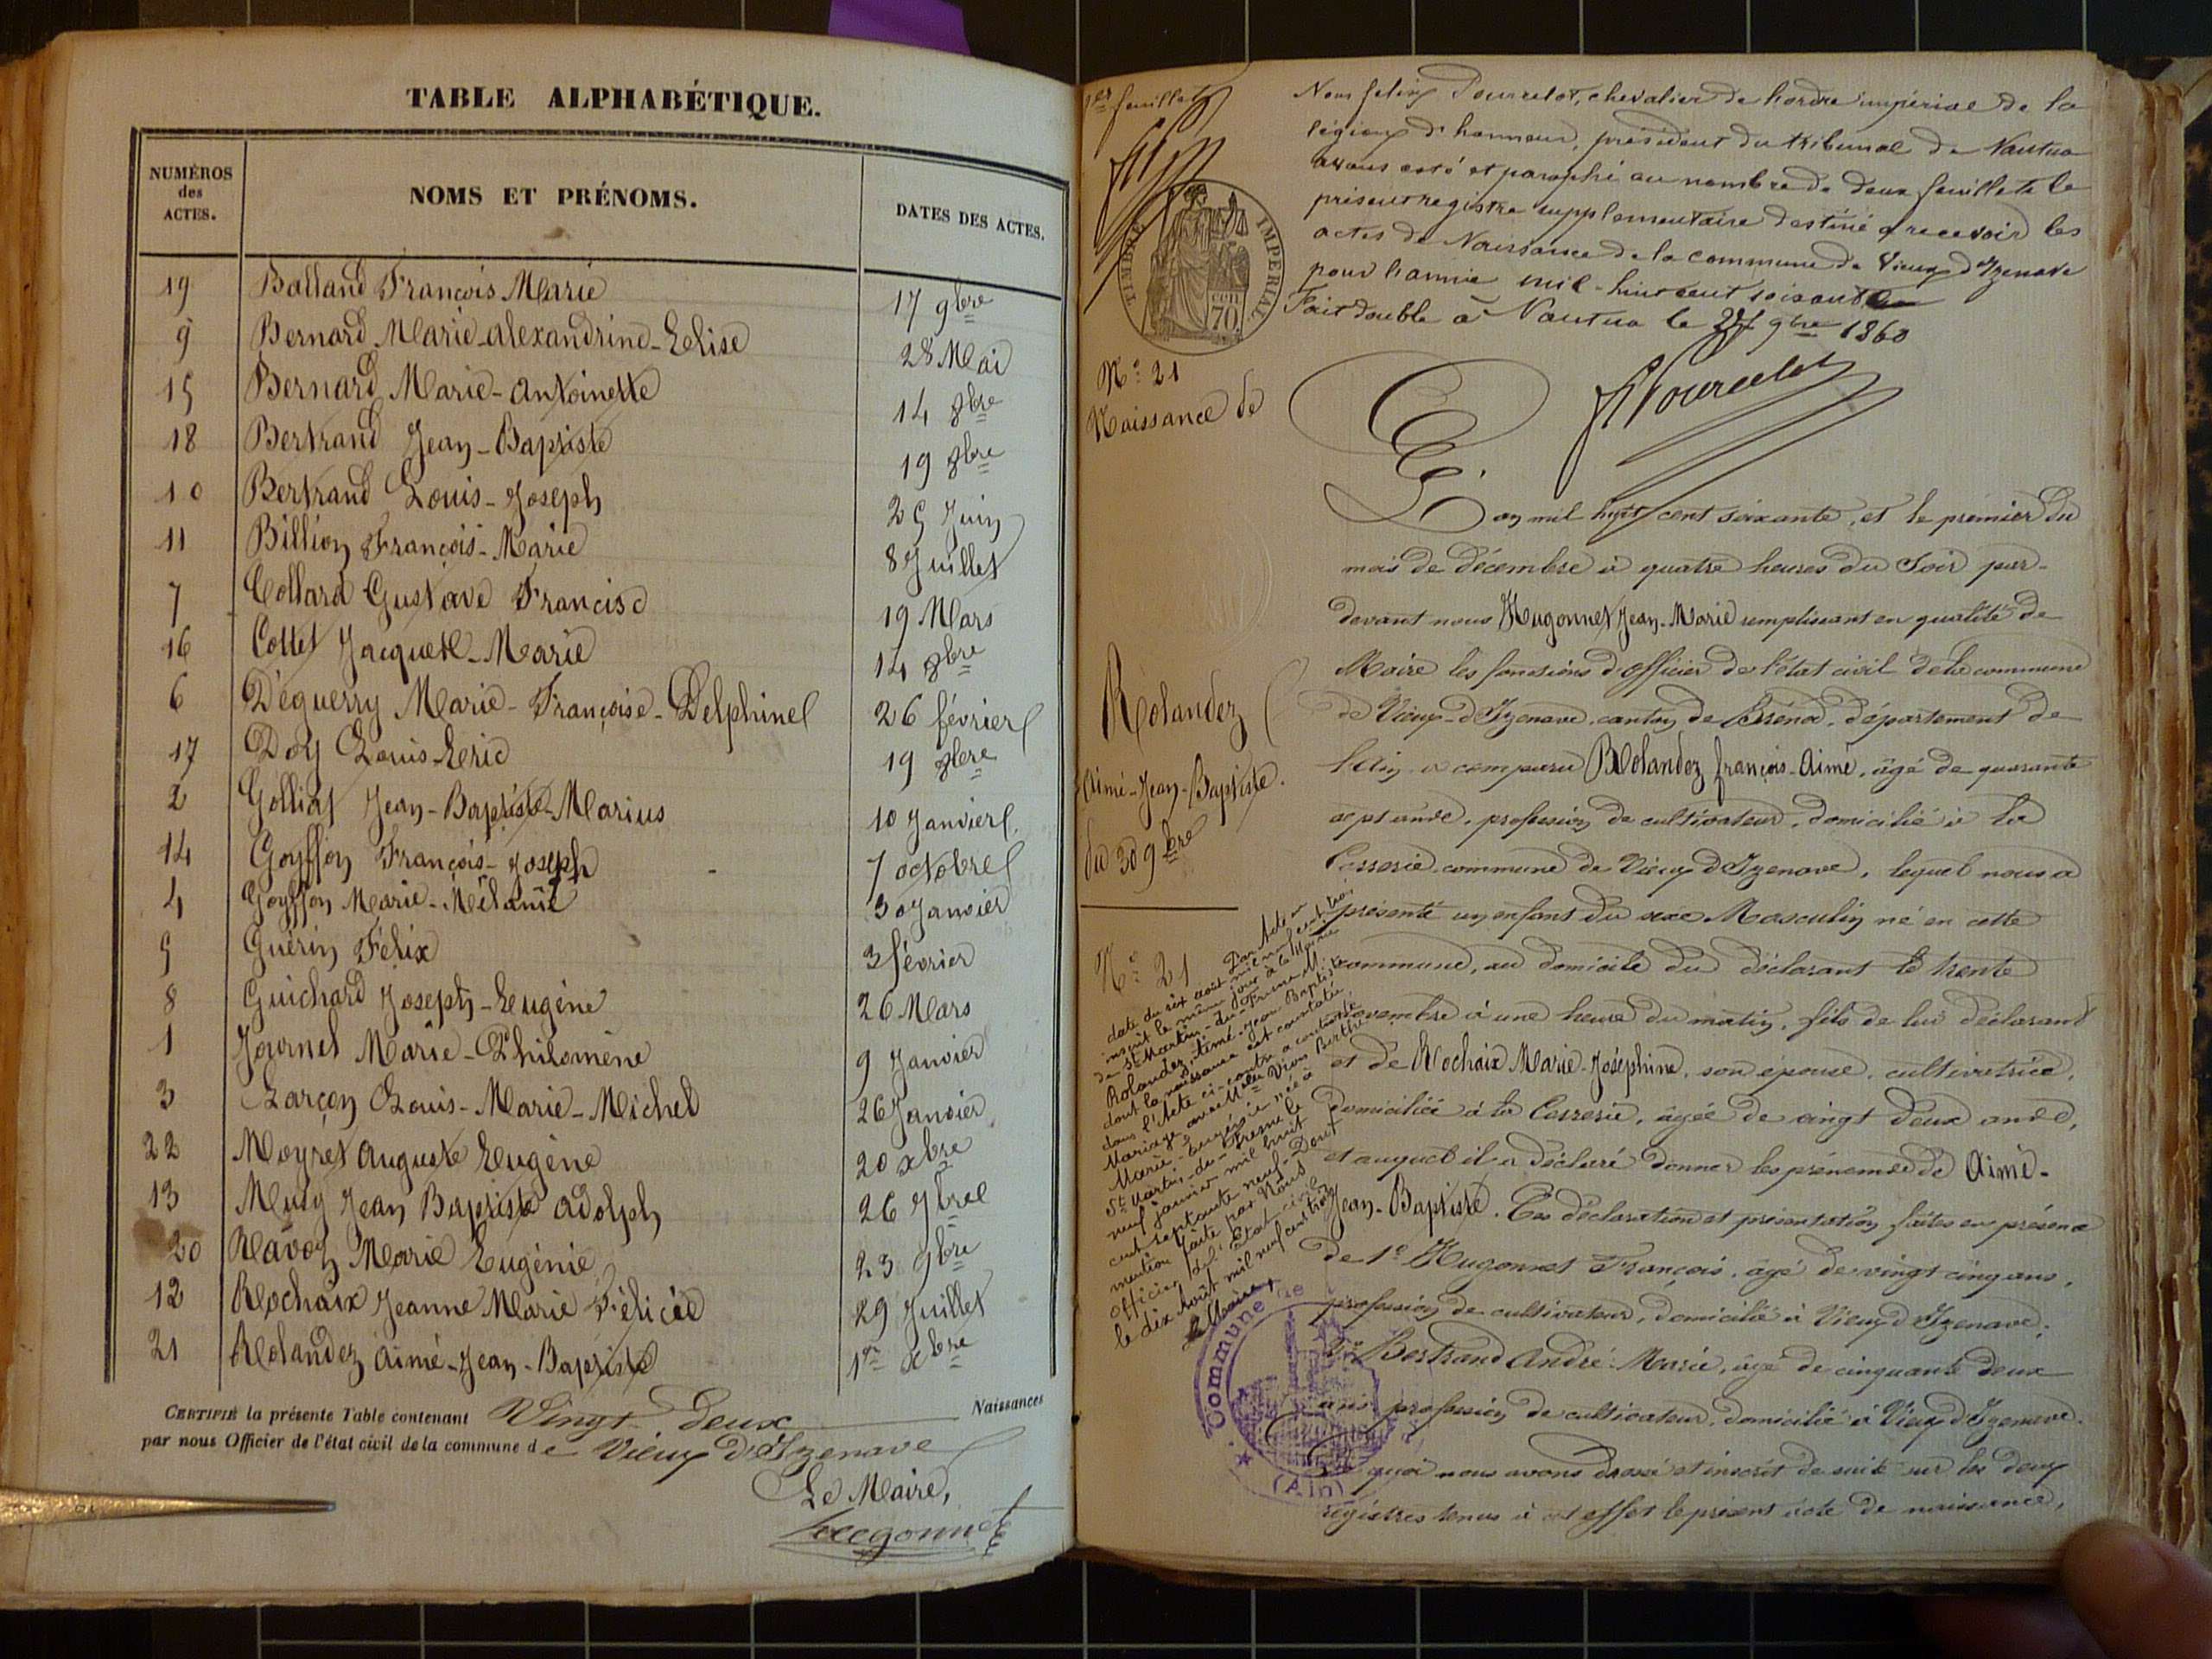 TABLE ALPHABÉTIQUE.
NUMÉROS des ACTES. NOMS ET PRÉNOMS. DATES DES ACTES.
19 Balland François Marie 17 9bre
9 Bernard Marie-Alexandrine-Elise 28 Mai
15 Bernard Marie-Antoinette 14 8bre
18 Bertrand Jean-Baptiste 19 8bre
10 Bertrand Louis-Joseph 25 Juin
11 Billion François-Marie 8 Juillet
7 Collard Gustave Francisc 19 Mars
16 Cottet Marie 14 8bre
6 Déguerry Marie-Françoise-Delphine 26 février
17 Doy Louis 19 8bre
2 Golliat Jean-Baptiste-Marius 10 Janvier
14 Goyffon François-Joseph 7 octobre
4 Goyffon Marie-Mélanie 30 Janvier
5 Guérin Félix 3 février
8 Guichard Joseph-Eugène 26 Mars
1 Journet Marie-Philomène 9 Janvier
3 Larçon Louis-Marie-Michel 26 Janvier
22 Moyret Auguste Eugène 20 xbre
13 Jean Baptiste Adolph 26 7bre
20 Ravoz Marie Eugénie 23 9bre
12 Rochaix Jeanne Marie 29 Juillet
21 Rolandez Aimé-Jean-Baptiste 1er xbre
CERTIFIÉ la présente Table contenant Vingt deux Naissances
par nous Officier de l'état civil de la commune de Vieux d'Izenave
Le Maire,
Hugonnet
1er feuillet
TIMBRE IMPÉRIAL
70 cen
Nous felix Pourcelot, chevalier de l'ordre impérial de la
légion d'honneur, président du tribunal de Nantua
avons coté et paraphé au nombre de deux feuillets le
présent registre supplementaire destiné a recevoir les
actes de Naissance de la commune de Vieux d'Izenave
pour l'année mil-huit cent soixante
Fait double à Nantua le 9bre 1860
Pourcelot
No 21
Naissance de
Rolandez
Aimé-Jean-Baptiste.
du 30 9bre
L'an mil huit cent soixante, et le premier du
mois de décembre à quatre heures du Soir par-
devant nous Hugonnet Jean-Marie remplissant en qualité de
Maire les fonctions d'officier de l'état civil de la commune
de Vieux-d'Izenave, canton de Brénod, département de
l'Ain a comparu Rolandez françois-Aimé, âgé de quarante
sept ans, profession de cultivateur, domicilié à la
commune de Vieux d'Izenave, lequel nous a
présenté un enfant du sexe Masculin né en cette
commune, au domicile du déclarant le trente
novembre à une heure du matin, fils de lui déclarant
et de Rochaix Marie-Joséphine, son épouse, cultivatrice,
domiciliée à la âgée de vingt deux ans,
et auquel il a déclaré donner les prénoms de Aimé-
Jean-Baptiste. Les déclaration et présentation faites en présence
de 1o Hugonnet François, agé de vingt cinq ans,
profession de cultivateur, domicilié à Vieux d'Izenave,
2o Bertrand André-Marie, agé de cinquante deux
ans profession de cultivateur, domicilié à Vieux d'Izenave.
De quoi nous avons dressé et inscrit de suite sur les deux
registres tenus à cet effet le présent acte de naissance,
No 21
Par Acte en
date du six août mil neuf cent trois
inscrit le même jour à la Mairie
de St Martin-du-Fresne M.
Rolandez, Aimé-Jean Baptiste
dont la naissance est constatée
dans l'Acte ci-contre a contracté
Mariage avec Melle Berthe
Marie- née à
St Martin-du-Fresne le
neuf janvier mil huit
cent septante neuf. Dont
mention faite par Nous
Officier de l'État civil
le dix Août mil neuf cent trois
Le Maire,
Commune de
(Ain)